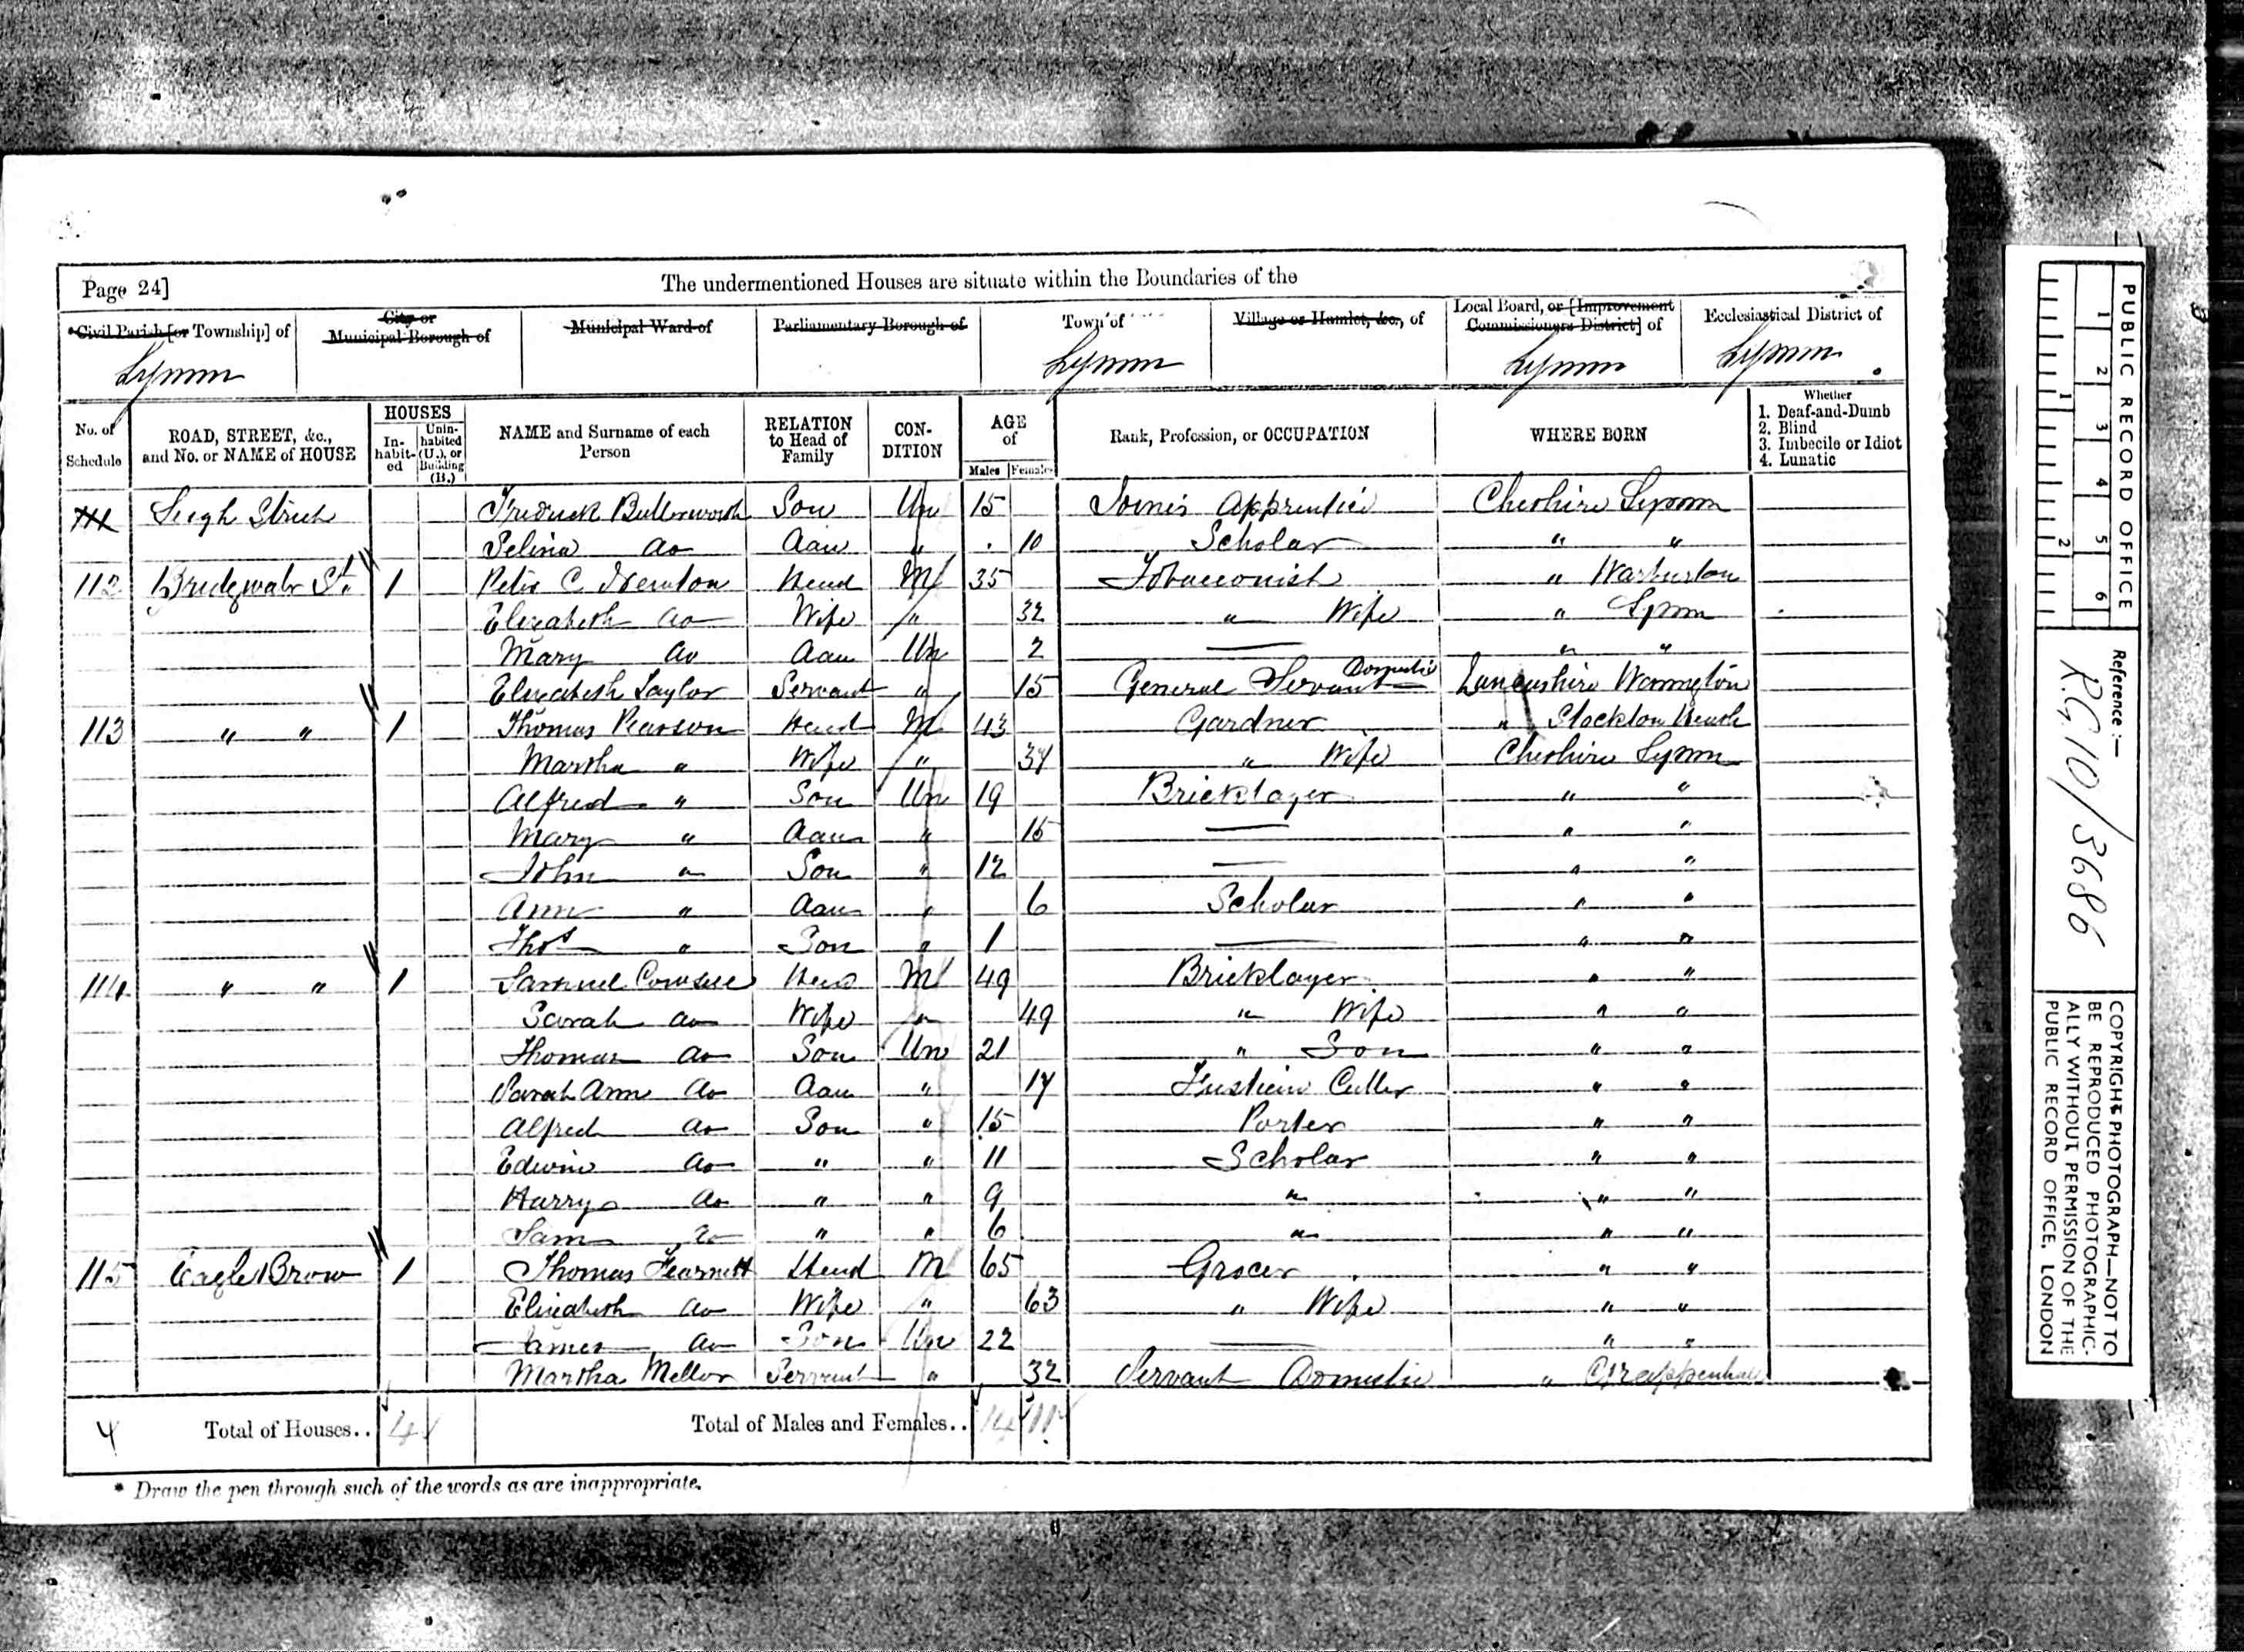 Page 24] The undermentioned Houses are situate within the Boundaries of the
*Civil Parish [or Township] of City or Municipal Borough of Municipal Ward of Parliamentary Borough of Town of Village or Hamlet, &c., of Local Board, or [Improvement Commissioners District] of Ecclesiastical District of
Lymm Lymm Lymm Lymm
No. of Schedule ROAD, STREET, &c., and No. or NAME of HOUSE HOUSES Inhabited Uninhabited (U.), or Building (B.) NAME and Surname of each Person RELATION to Head of Family CONDITION AGE of Males Females Rank, Profession, or OCCUPATION WHERE BORN Whether 1. Deaf-and-Dumb 2. Blind 3. Imbecile or Idiot 4. Lunatic
111 Frederick Butterworth Son Un 15 Apprentice Cheshire Lymm
Selina do Dau " 10 Scholar " "
112 Bridgwatr St. 1 Peter C Newton Head M 35 Tobacconist " Warburton
Elizabeth do Wife " 32 " Wife " Lymm
Mary do Dau Un 2 — " "
Elizabeth Taylor Servant " 15 General Servant Domestic Lancashire Warrington
113 " " 1 Thomas Pearson Head M 43 Gardner " Stockton Heath
Martha " Wife " 37 " Wife Cheshire Lymm
Alfred " Son Un 19 Bricklayer " "
Mary " Dau " 15 — " "
John " Son " 12 — " "
Ann " Dau " 6 Scholar " "
Thos " Son " 1 — " "
114 " " 1 Samuel Head M 49 Bricklayer " "
Sarah do Wife " 49 " Wife " "
Thomas do Son Un 21 " Son " "
Sarah Ann do Dau " 17 Fustian Cutter " "
Alfred do Son " 15 Porter " "
Edwin do " " 11 Scholar " "
Harry do " " 9 " " "
Sam do " " 6 " " "
115 Eagle Brow 1 Thomas Head M 65 Grocer " "
Elizabeth do Wife " 63 " Wife " "
James do Son Un 22 — " "
Martha Mellor Servant " 32 Servant Domestic " Grappenhall
4 Total of Houses.. 4 Total of Males and Females.. 14 11
* Draw the pen through such of the words as are inappropriate.
PUBLIC RECORD OFFICE
1 2 3 4 5 6
1 2
Reference :—
R.G. 10/3686
COPYRIGHT PHOTOGRAPH—NOT TO
BE REPRODUCED PHOTOGRAPHIC-
ALLY WITHOUT PERMISSION OF THE
PUBLIC RECORD OFFICE, LONDON